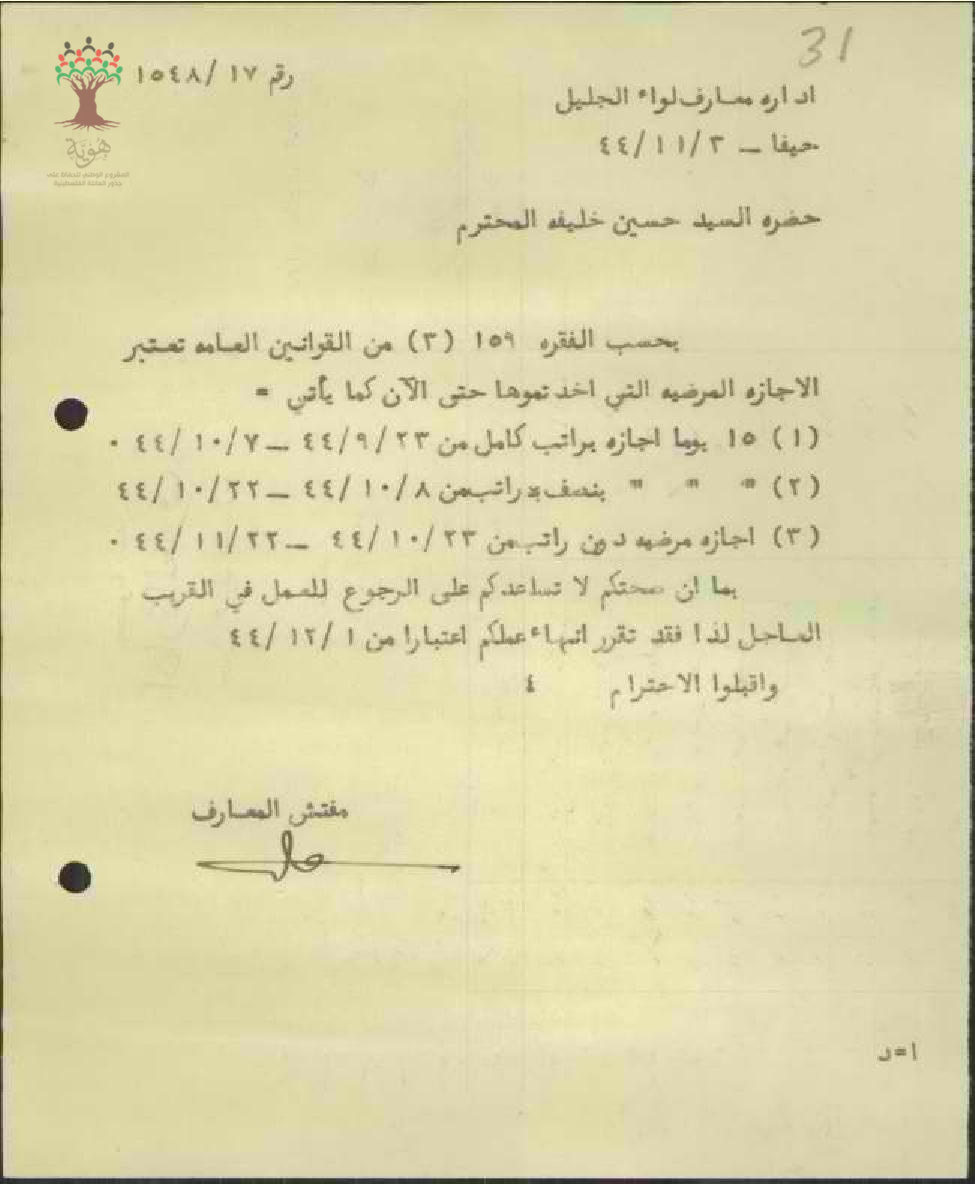 31
رقم ١٧ /١٥٤٨
اداره معارف لواء الجليل
حيفا ــ ٤٤/١١/٣
هُوِيَّة
المشروع الوطني للحفاظ على
جذور العائلة الفلسطينية
حضره السيد حسين خليفه المحترم
بحسب الفقره ١٥٩ (٣) من القوانين العامه تعتبر
الاجازه المرضيه التي اخذتموها حتى الآن كما يأتي =
(١) ١٥ يوما اجازه براتب كامل من ٤٤/٩/٢٣ ــ ٤٤/١٠/٧ ٠
(٢) " " " بنصف راتب من ٤٤/١٠/٨ ــ ٤٤/١٠/٢٢
(٣) اجازه مرضيه دون راتب من ٤٤/١٠/٢٣ ــ ٤٤/١١/٢٢ ٠
بما ان صحتكم لا تساعدكم على الرجوع للعمل في القريب
العاجل لذا فقد تقرر انهاء عملكم اعتبارا من ٤٤/١٢/١
واقبلوا الاحترام ٤
مفتش المعارف
ا=د